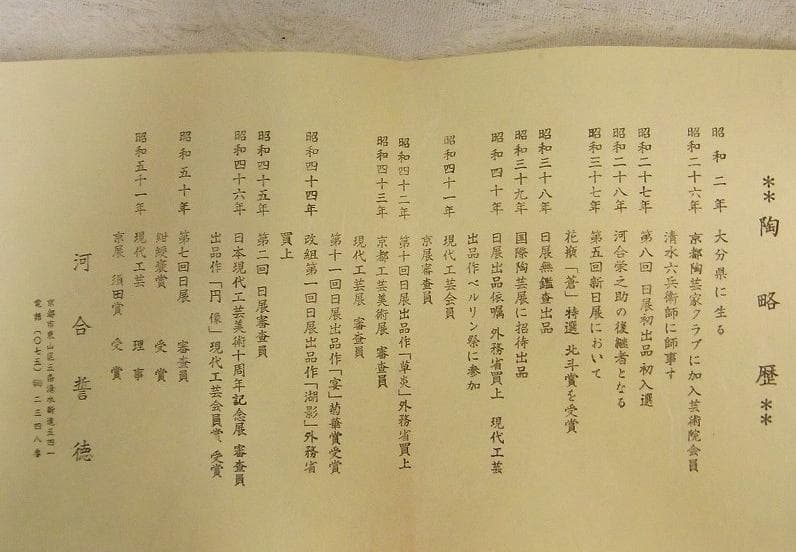 **陶略歴**
昭和二年 大分県に生る
昭和二十六年 京都陶芸家クラブに加入芸術院会員
清水六兵衛師に師事す
昭和二十七年 第八回 日展初出品 初入選
昭和二十八年 河合栄之助の後継者となる
昭和三十七年 第五回新日展において
花瓶「蒼」特選 北斗賞を受賞
昭和三十八年 日展無鑑査出品
昭和三十九年 国際陶芸展に招待出品
昭和四十年 日展出品依嘱 外務省買上 現代工芸
出品作ベルリン祭に参加
昭和四十一年 現代工芸会員
京展審査員
昭和四十二年 第十回日展出品作「草炎」外務省買上
昭和四十三年 京都工芸美術展 審査員
現代工芸展 審査員
第十一回日展出品作「宴」菊華賞受賞
昭和四十四年 改組第一回日展出品作「湖影」外務省
買上
昭和四十五年 第二回 日展審査員
昭和四十六年 日本現代工芸美術十周年記念展 審査員
出品作「円像」現代工芸会員賞 受賞
昭和五十年 第七回日展 審査員
紺綬褒賞 受賞
昭和五十一年 現代工芸 理事
京展 須田賞 受賞
河合誓徳
京都市東山区五条清水新道五四一
電話(〇七五) 二三四八番